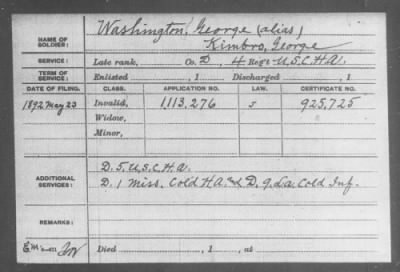 NAME OF SOLDIER: Washington, George (alias)
Kimbro, George
SERVICE: Late rank, Co. D, 4 Reg't U.S.C.H.A.
TERM OF SERVICE: Enlisted , 1 Discharged , 1
DATE OF FILING. CLASS. APPLICATION NO. LAW. CERTIFICATE NO.
1892 May 23 Invalid, 1,113,276 J 925,725
Widow,
Minor,
ADDITIONAL SERVICES: D. 5. U.S.C.H.A.
D. 1 Miss. Cold H.A. and D. 9. La. Cold Inf.
REMARKS:
Died , 1 , at